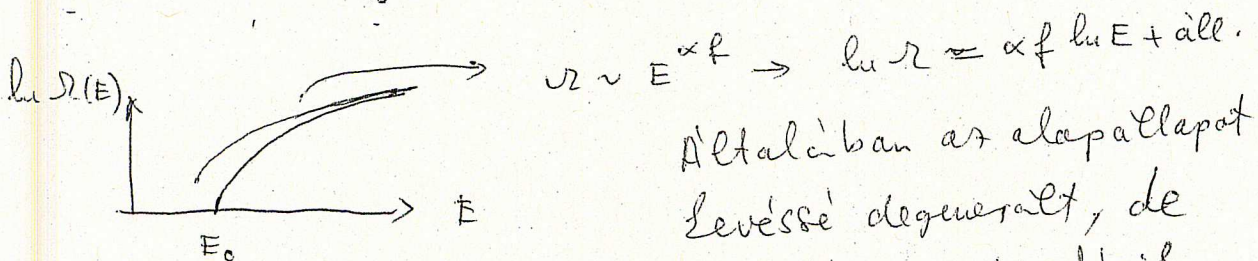 ln Ω(E)
E
E₀
Ω ~ E^{αf} → ln Ω = αf ln E + áll.
Általában az alapállapot
kevéssé degenerált, de